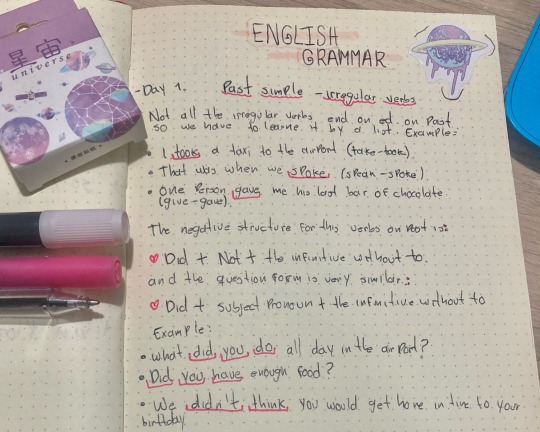 星宙
universe
ENGLISH
GRAMMAR
-Day 1. Past simple - irregular verbs
Not all the irregular verbs end on ed on past
so we have to learne it by a list. Example:
• I took a taxi to the airport (take-took)
• That was when we spoke (speak-spoke)
• One Person gave me his last bar of chocolate
(give-gave).
The negative structure for this verbs on Past is:
Did + Not + the infinitive without to.
and the question form is very similar:
Did + subject Pronoun + the infinitive without to
Example:
• What did you do all day in the airport?
• Did you have enough food?
• We didn't think you would get home in time to your
birthday